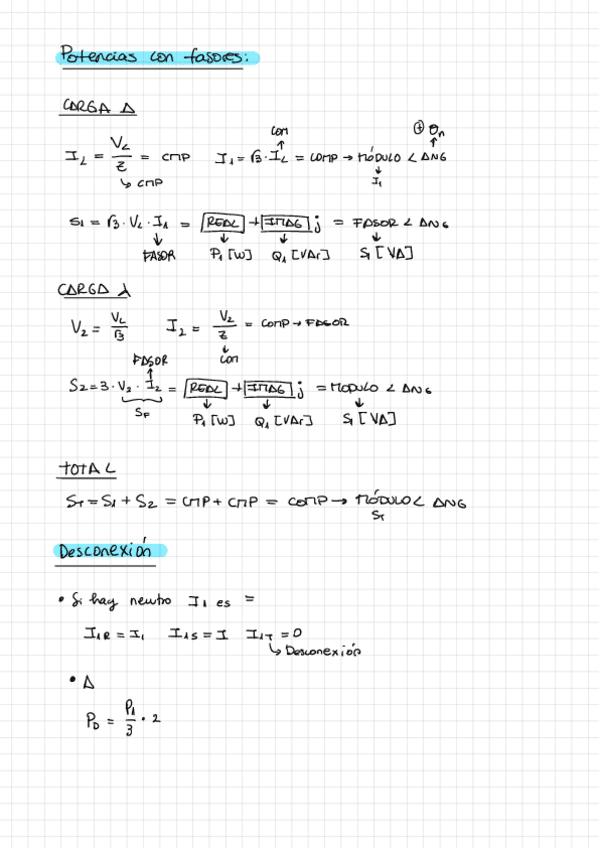 Potencias con fasores:
CARGA Δ
com ⊕ θn
I_L = V_L / Z = CMP I1 = √3 · I_L = COMP → MÓDULO ∠ ANG
↳ CMP I1
S1 = √3 · V_L · I1 = REAL + IMAG j = FASOR ∠ ANG
FASOR P1 [W] Q1 [VAr] S1 [VA]
CARGA λ
V2 = V_L / √3 I2 = V2 / Z = COMP → FASOR
FASOR COM
S2 = 3 · V2 · I2 = REAL + IMAG j = MODULO ∠ ANG
SF P1 [W] Q1 [VAr] S1 [VA]
TOTAL
ST = S1 + S2 = CMP + CMP = COMP → MÓDULO ∠ ANG
ST
Desconexión
• Si hay neutro I1 es =
I1R = I1 I1S = I I1T = 0
↳ Desconexión
• Δ
PD = P1 / 3 · 2